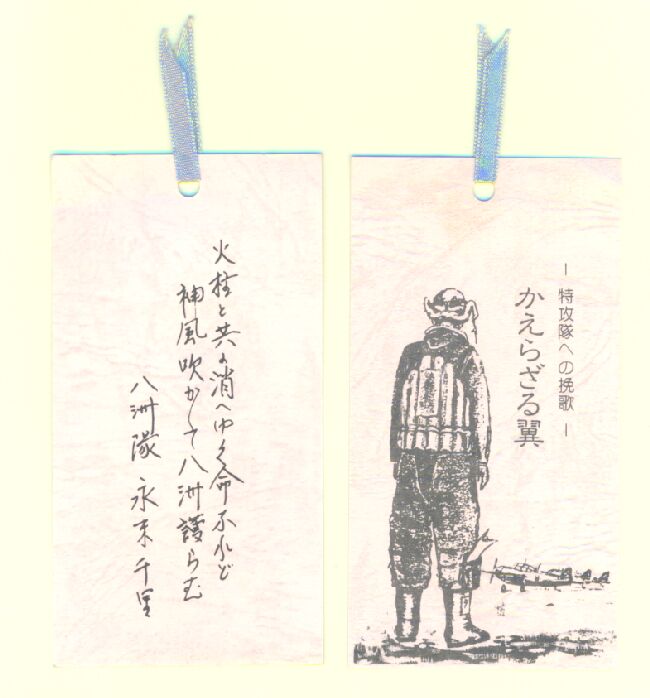 火柱と共に消へゆく命なれど
神風吹かして八洲護らむ
八洲隊 永末千里
ー 特攻隊への挽歌 ー
かえらざる翼